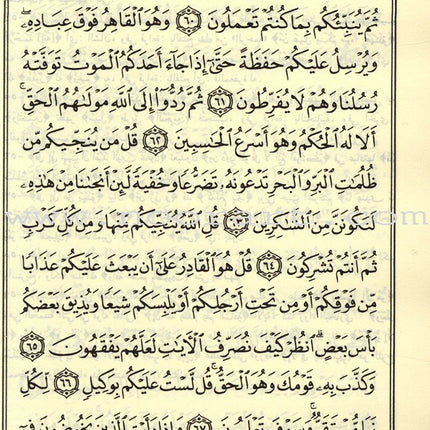 ثُمَّ يُنَبِّئُكُم بِمَا كُنتُمْ تَعْمَلُونَ ٦٠ وَهُوَ ٱلْقَاهِرُ فَوْقَ عِبَادِهِۦ ۖ
وَيُرْسِلُ عَلَيْكُمْ حَفَظَةً حَتَّىٰٓ إِذَا جَآءَ أَحَدَكُمُ ٱلْمَوْتُ تَوَفَّتْهُ
رُسُلُنَا وَهُمْ لَا يُفَرِّطُونَ ٦١ ثُمَّ رُدُّوٓا۟ إِلَى ٱللَّهِ مَوْلَىٰهُمُ ٱلْحَقِّ ۚ
أَلَا لَهُ ٱلْحُكْمُ وَهُوَ أَسْرَعُ ٱلْحَٰسِبِينَ ٦٢ قُلْ مَن يُنَجِّيكُم مِّن
ظُلُمَٰتِ ٱلْبَرِّ وَٱلْبَحْرِ تَدْعُونَهُۥ تَضَرُّعًا وَخُفْيَةً لَّئِنْ أَنجَىٰنَا مِنْ هَٰذِهِۦ
لَنَكُونَنَّ مِنَ ٱلشَّٰكِرِينَ ٦٣ قُلِ ٱللَّهُ يُنَجِّيكُم مِّنْهَا وَمِن كُلِّ كَرْبٍ
ثُمَّ أَنتُمْ تُشْرِكُونَ ٦٤ قُلْ هُوَ ٱلْقَادِرُ عَلَىٰٓ أَن يَبْعَثَ عَلَيْكُمْ عَذَابًا
مِّن فَوْقِكُمْ أَوْ مِن تَحْتِ أَرْجُلِكُمْ أَوْ يَلْبِسَكُمْ شِيَعًا وَيُذِيقَ بَعْضَكُم
بَأْسَ بَعْضٍ ۗ ٱنظُرْ كَيْفَ نُصَرِّفُ ٱلْءَايَٰتِ لَعَلَّهُمْ يَفْقَهُونَ ٦٥
وَكَذَّبَ بِهِۦ قَوْمُكَ وَهُوَ ٱلْحَقُّ ۚ قُل لَّسْتُ عَلَيْكُم بِوَكِيلٍ ٦٦ لِّكُلِّ
نَبَإٍ مُّسْتَقَرٌّ ۚ وَسَوْفَ تَعْلَمُونَ ٦٧ وَإِذَا رَأَيْتَ ٱلَّذِينَ يَخُوضُونَ فِىٓ